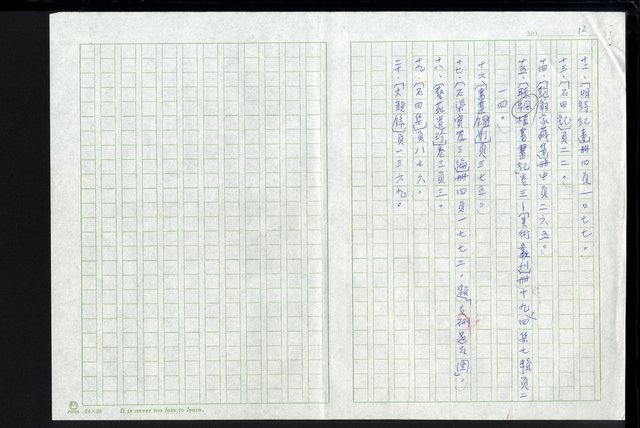 NO. 12
十二、〔明詩紀事〕冊四頁一○七七。
十三、〔石田記〕頁二二。
十四、〔匏翁家藏集〕冊中頁二六五。
十五、書畫記〕卷三—〔美術叢刊〕冊十九、四集七輯頁二
一四。
十六、〔書畫鑑影〕頁三七五。
十七、〔石渠寶笈三編〕冊四頁一七七二，題「友過友圖」。
十八、〔藝苑遺珍〕卷二頁三。
十九、〔石田集〕頁八七六。
二十、〔大觀錄〕頁一三六九。
24×25 It is never too late to learn.